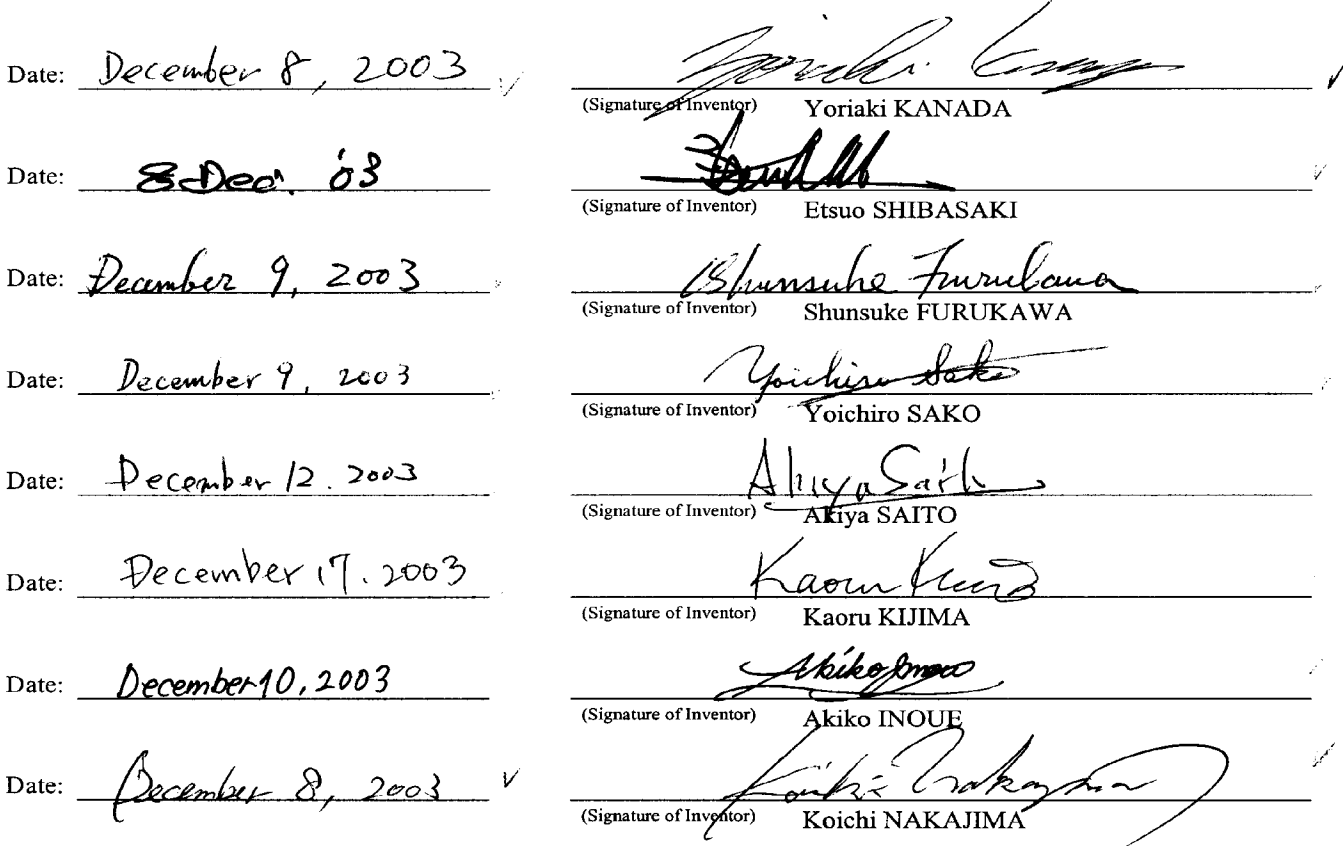 Date: December 8, 2003
(Signature of Inventor) Yoriaki KANADA
Date: 8 Dec. '03
(Signature of Inventor) Etsuo SHIBASAKI
Date: December 9, 2003 Shunsuke Furukawa
(Signature of Inventor) Shunsuke FURUKAWA
Date: December 9, 2003 Yoichiro Sako
(Signature of Inventor) Yoichiro SAKO
Date: December 12. 2003 Akiya Saito
(Signature of Inventor) Akiya SAITO
Date: December 17. 2003 Kaoru
(Signature of Inventor) Kaoru KIJIMA
Date: December 10, 2003 Akiko Inoue
(Signature of Inventor) Akiko INOUE
Date: December 8, 2003
(Signature of Inventor) Koichi NAKAJIMA